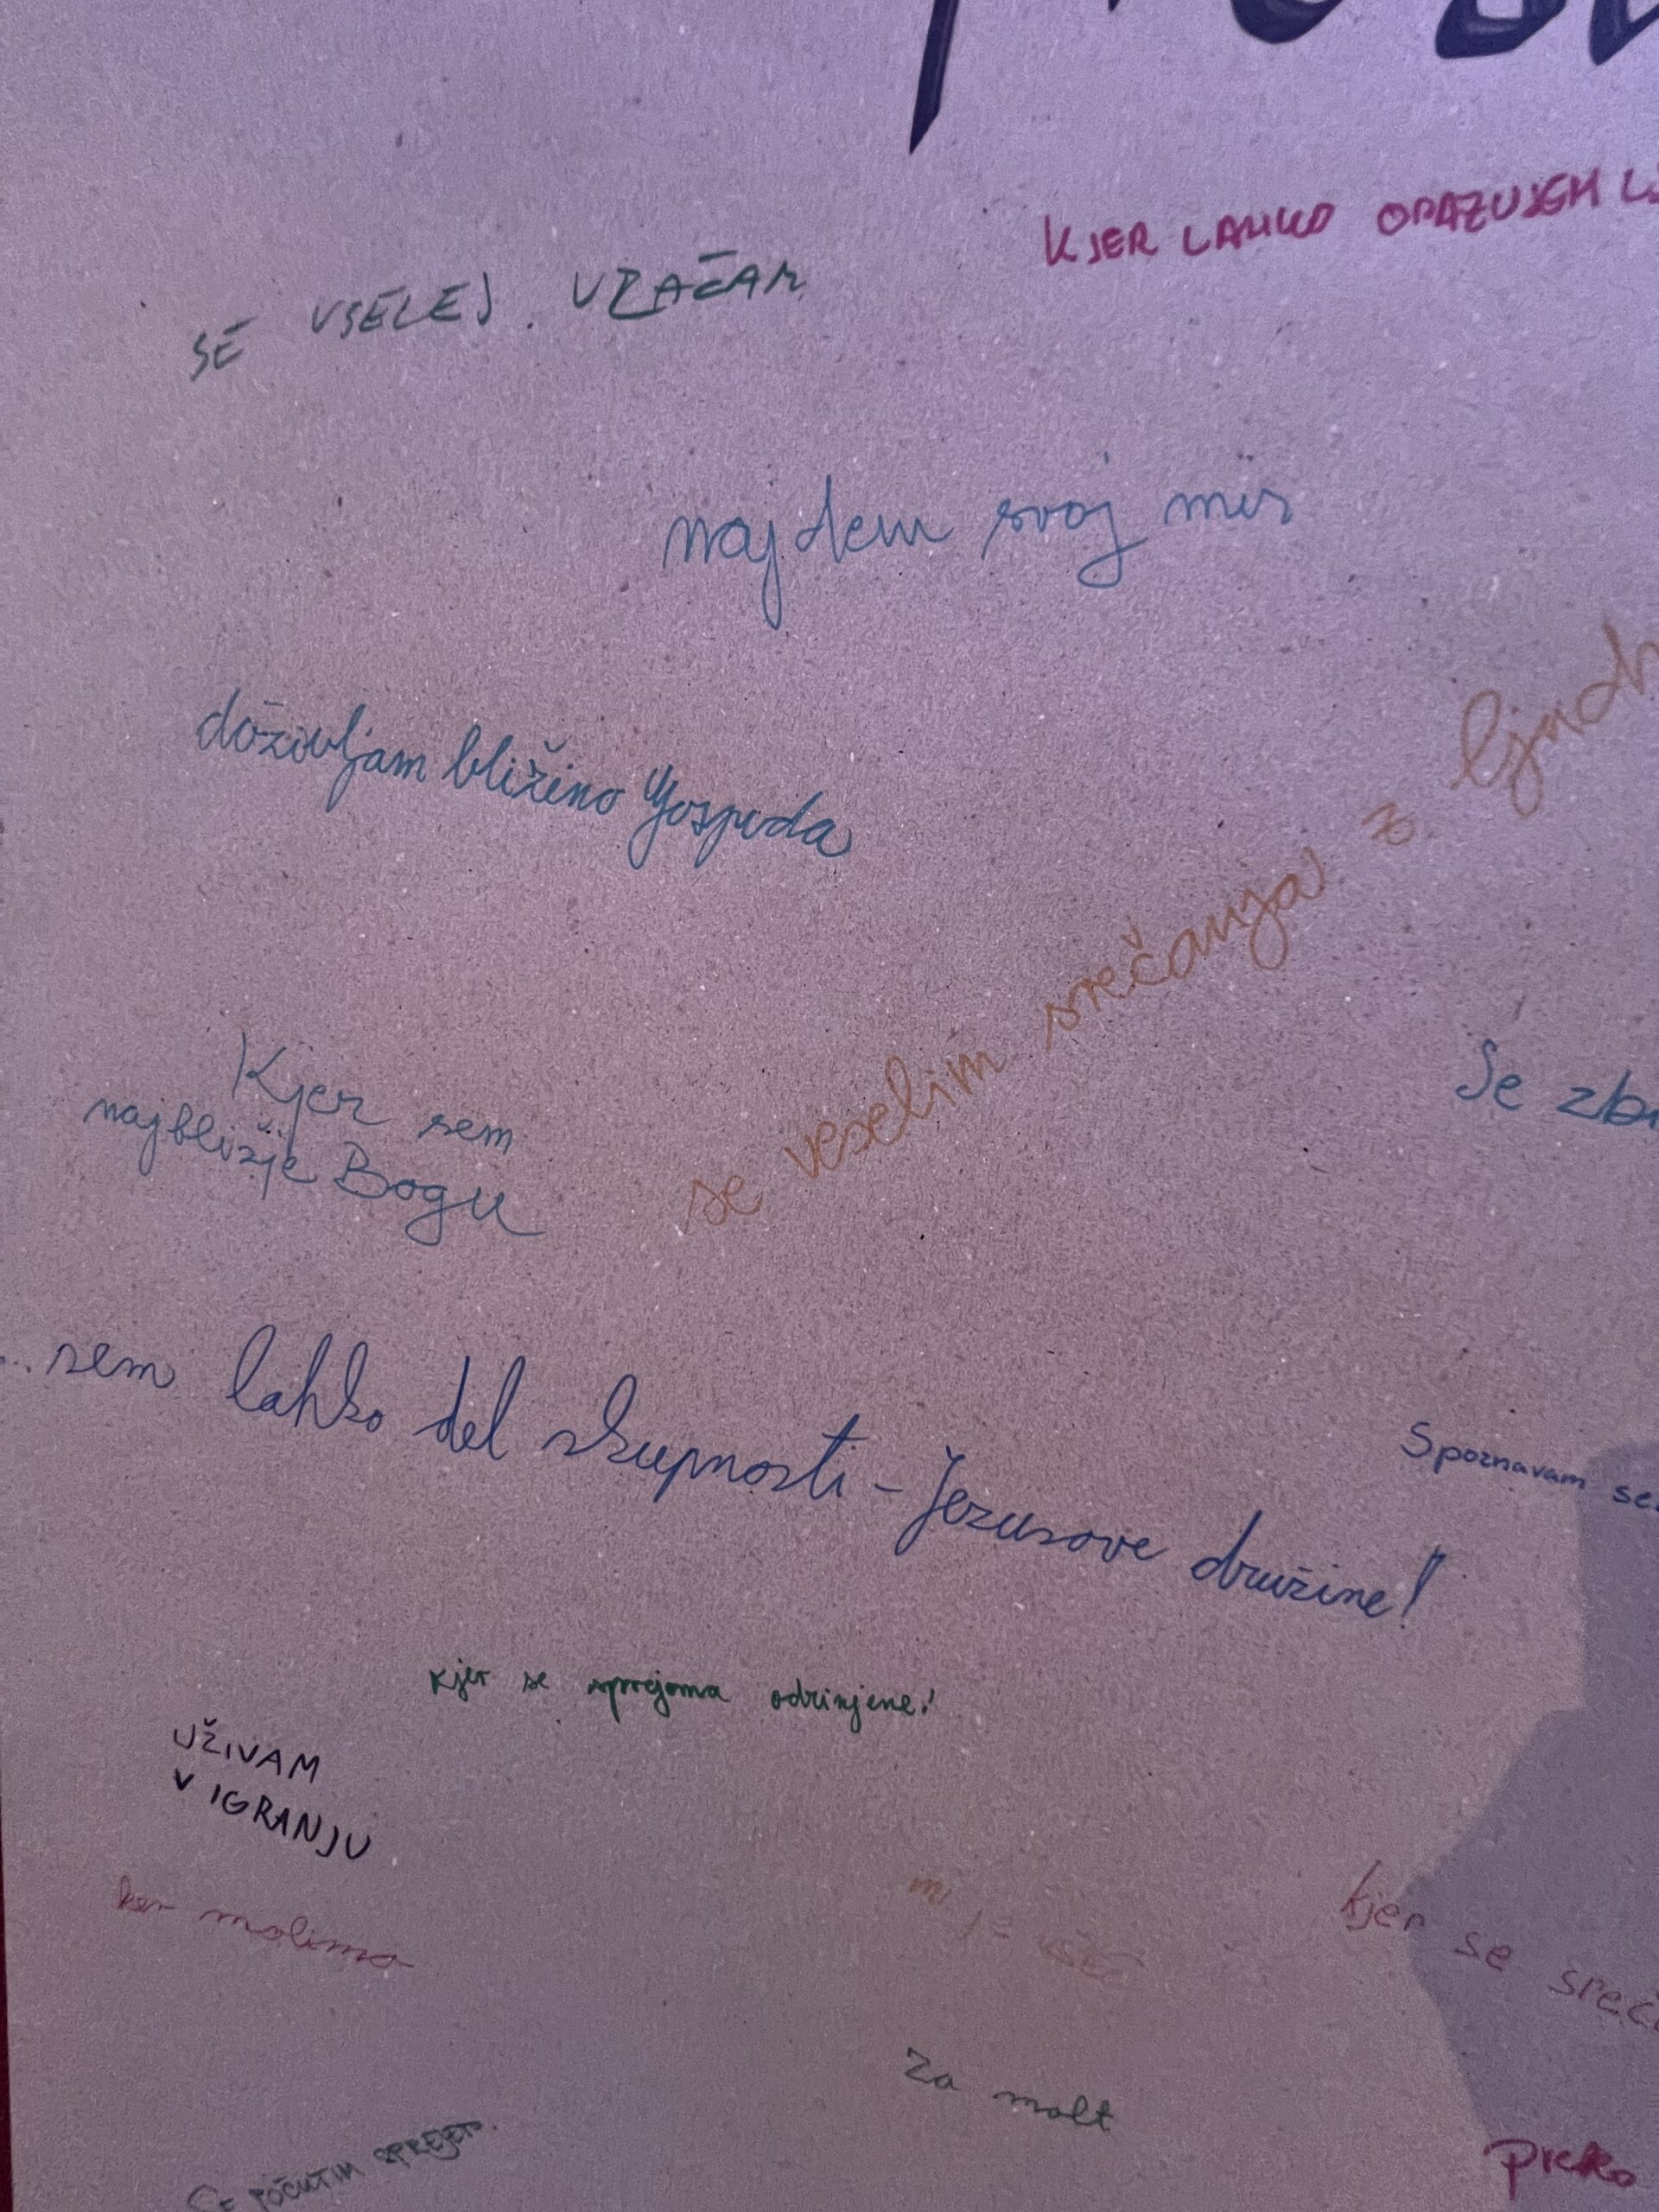 KJER LAHKO OPAZUJEM
SE VSELEJ VRAČAM
najdem svoj mir
doživljam bližino Gospoda
se veselim srečanja z ljudm
Se zbi
Kjer sem
najbližje Bogu
...sem lahko del skupnosti - Jezusove družine!
Spoznavam
kjer se sprejema odrinjene!
UŽIVAM
V IGRANJU
ker molimo
mi je všeč
kjer se sreč
Za molt
Preko
SE POČUTIM SPREJETO.